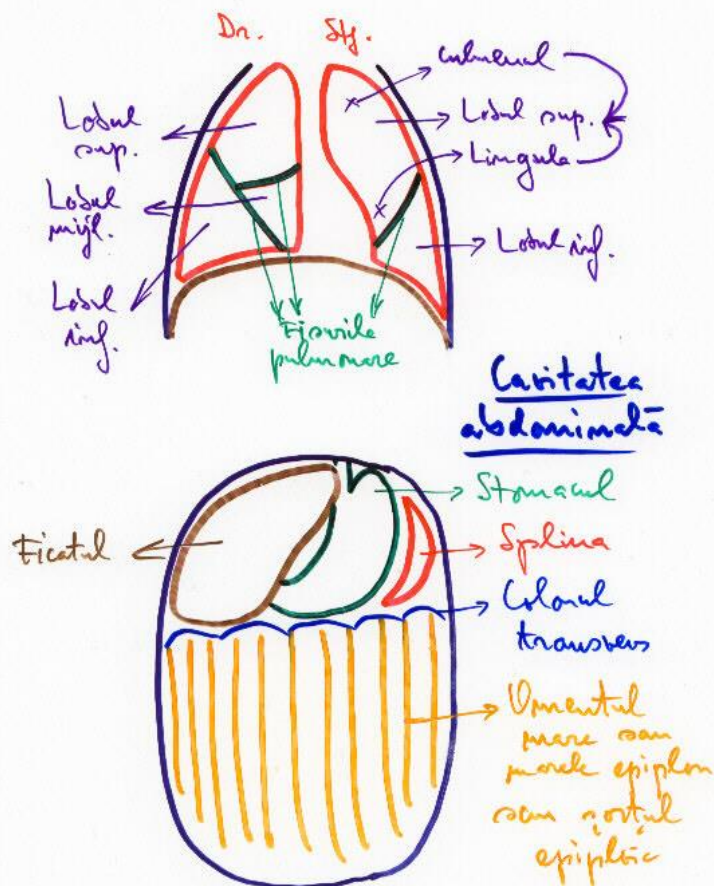 Dr. Stg.
culmenul
Lobul
sup.
Lobul sup.
Lingula
Lobul
mijl.
Lobul inf.
Lobul
inf.
Fisurile
pulmonare
Cavitatea
abdominală
Stomacul
Ficatul
Splina
Colonul
transvers
Omentul
mare sau
marele epiplon
sau șorțul
epiploic